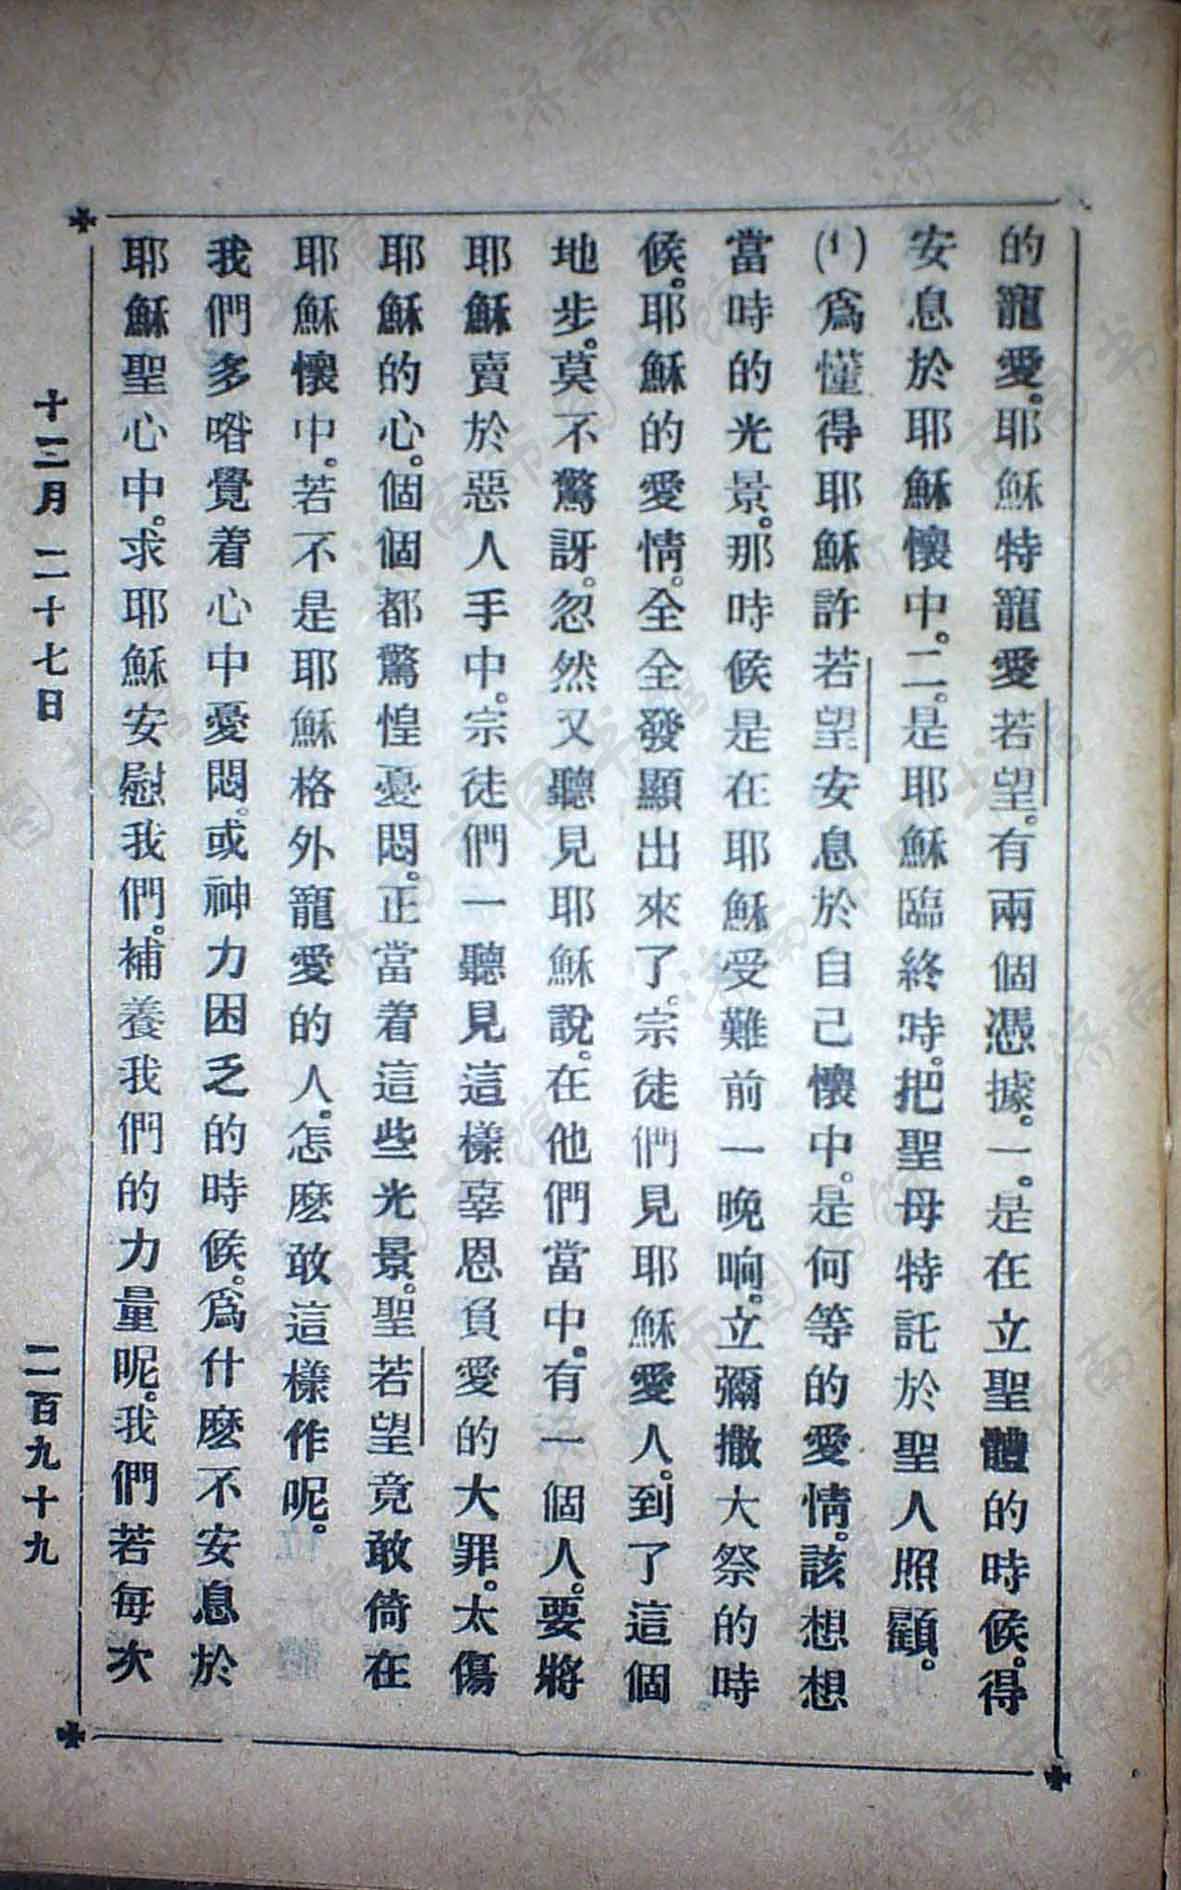 的寵愛。耶穌特寵愛若望。有兩個憑據。一。是在立聖體的時候。得
安息於耶穌懷中。二。是耶穌臨終時。把聖母特託於聖人照顧。
(1)爲懂得耶穌許若望安息於自己懷中。是何等的愛情。該想想
當時的光景。那時候是在耶穌受難前一晚晌。立彌撒大祭的時
候。耶穌的愛情。全全發顯出來了。宗徒們見耶穌愛人。到了這個
地步。莫不驚訝。忽然又聽見耶穌說。在他們當中。有一個人。要將
耶穌賣於惡人手中。宗徒們一聽見這樣辜恩負愛的大罪。太傷
耶穌的心。個個都驚惶憂悶。正當着這些光景。聖若望竟敢倚在
耶穌懷中。若不是耶穌格外寵愛的人。怎麽敢這樣作呢。
我們多喒覺着心中憂悶。或神力困乏的時候。爲什麽不安息於
耶穌聖心中。求耶穌安慰我們。補養我們的力量呢。我們若每次
十二月二十七日
二百九十九